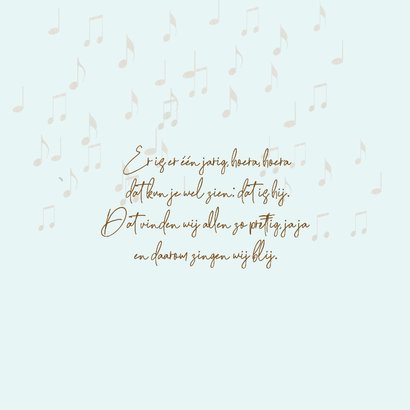 Er is er één jarig, hoera, hoera
dat kun je wel zien; dat is hij.
Dat vinden wij allen zo prettig, ja ja
en daarom zingen wij blij.